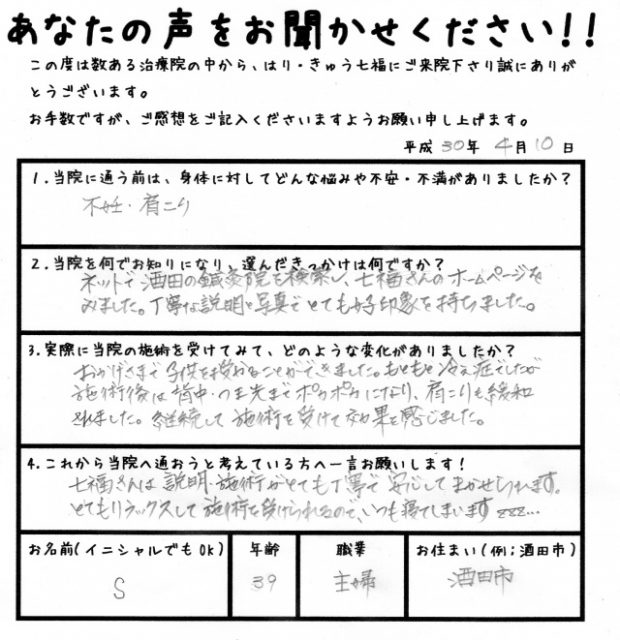 あなたの声をお聞かせください!!
この度は数ある治療院の中から、はり・きゅう七福にご来院下さり誠にありが
とうございます。
お手数ですが、ご感想をご記入くださいますようお願い申し上げます。
平成 30年 4月 10日
1.当院に通う前は、身体に対してどんな悩みや不安・不満がありましたか?
不妊・肩こり
2.当院を何でお知りになり、選んだきっかけは何ですか?
ネットで酒田の鍼灸院を検索し、七福さんのホームページを
みました。丁寧な説明と写真でとても好印象を持ちました。
3.実際に当院の施術を受けてみて、どのような変化がありましたか?
おかげさまで子供を授かることができました。もともと冷え症でしたが
施術後は背中・つま先までポカポカになり、肩こりも緩和
されました。継続して施術を受けて効果を感じました。
4.これから当院へ通おうと考えている方へ一言お願いします!
七福さんは説明・施術がとても丁寧で安心してまかせられます。
とてもリラックスして施術を受けられるので、いつも寝てしまいます zzz…
お名前(イニシャルでもOK) 年齢 職業 お住まい(例;酒田市)
S 39 主婦 酒田市